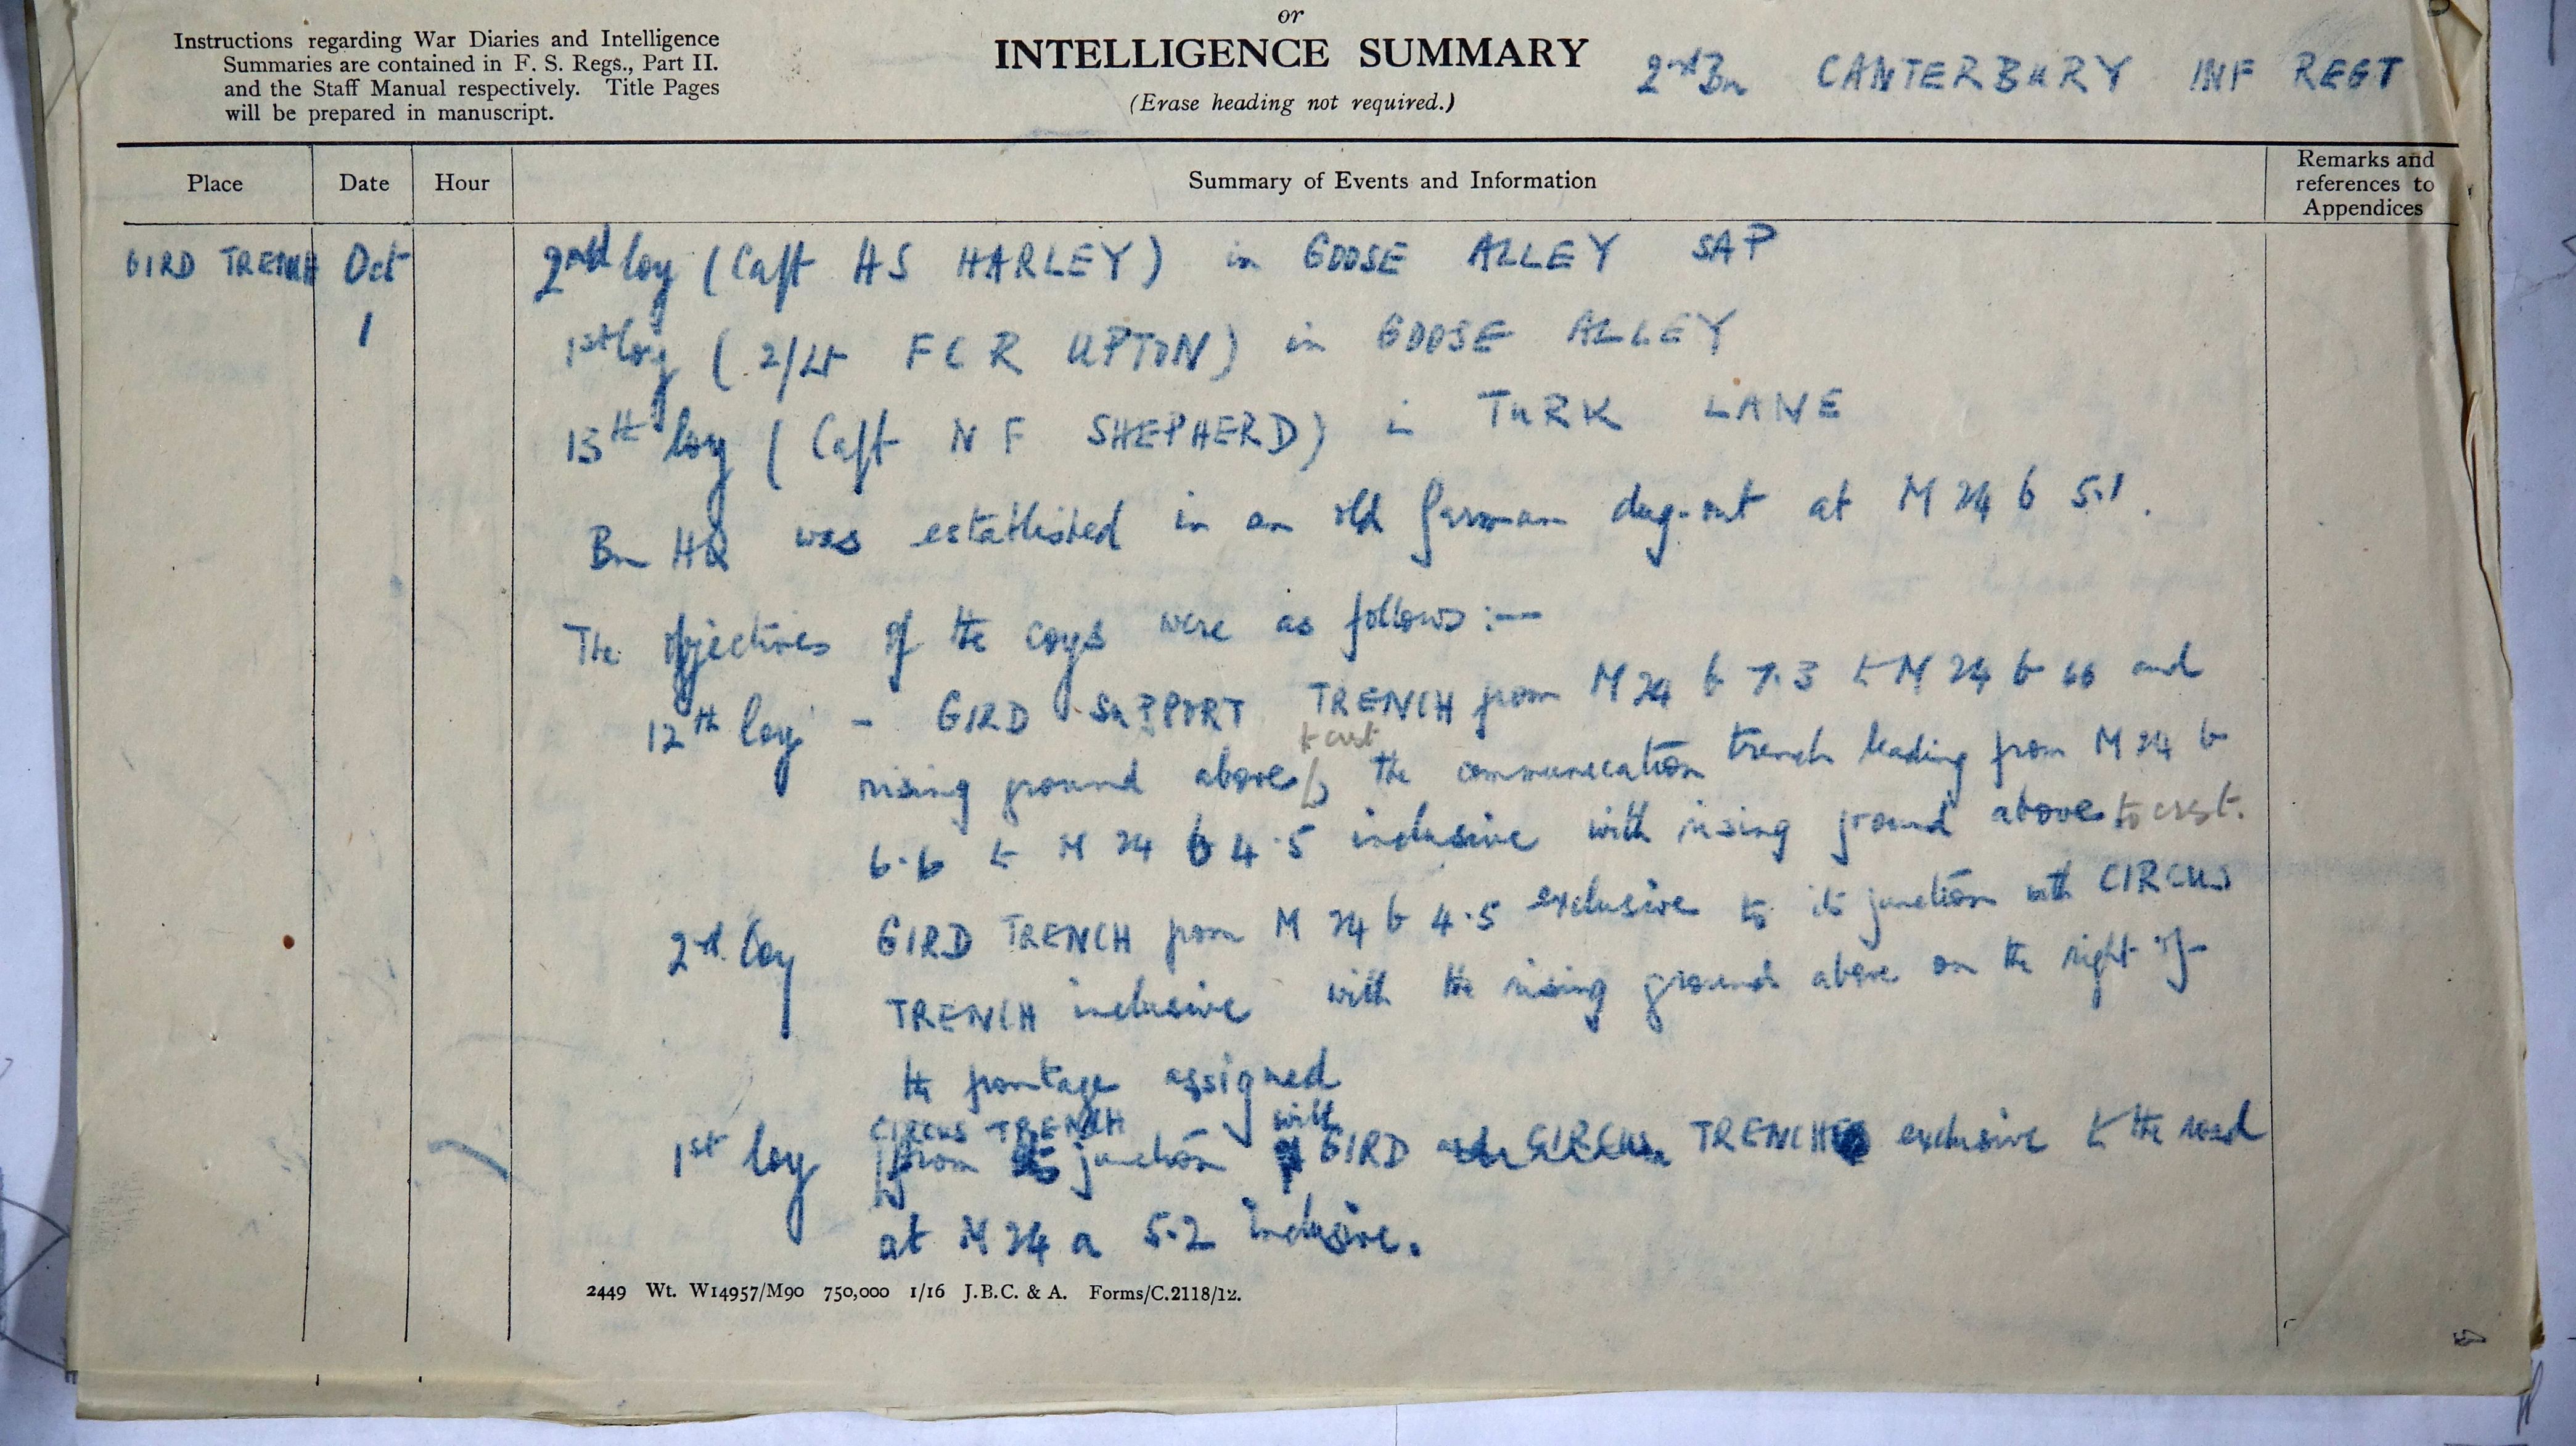 or
Instructions regarding War Diaries and Intelligence
Summaries are contained in F. S. Regs., Part II.
and the Staff Manual respectively. Title Pages
will be prepared in manuscript.
INTELLIGENCE SUMMARY
(Erase heading not required.)
2nd Bn CANTERBURY INF REGT
Place Date Hour Summary of Events and Information Remarks and references to Appendices
GIRD TRENCH Oct 2nd Coy (Capt HS HARLEY) in GOOSE ALLEY SAP
1 1st Coy (2/Lt FCR UPTON) in GOOSE ALLEY
13th Coy (Capt N F SHEPHERD) in TURK LANE
Bn HQ was established in an old German dug-out at M 24 b 5.1.
The objectives of the coys were as follows :—
12th Coy - GIRD SUPPORT TRENCH from M 24 b 7.3 to M 24 b 66 and
to crest
rising ground above, the communication trench leading from M 24 b
6.6 to M 24 b 4.5 inclusive with rising ground above to crest.
2nd Coy GIRD TRENCH from M 24 b 4.5 exclusive to its junction with CIRCUS
TRENCH inclusive with the rising ground above on the right of
the frontage assigned
CIRCUS TRENCH with
1st Coy from junction GIRD TRENCH exclusive to the road
at M 24 a 5.2 inclusive.
2449 Wt. W14957/M90 750,000 1/16 J.B.C. & A. Forms/C.2118/12.